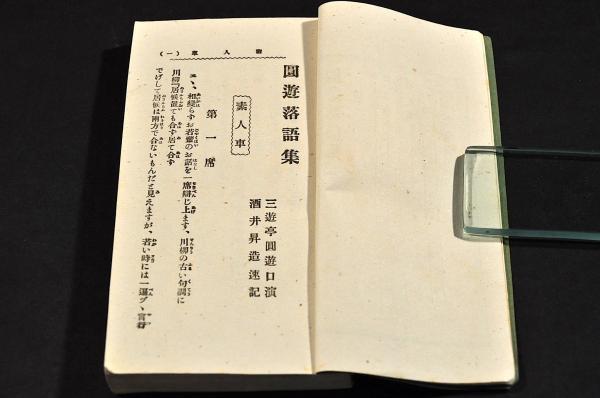 素人車（一）
圓遊落語集
素人車
三遊亭圓遊口演
酒井昇造速記
第一席
エヽ、相變らずお若輩のお話を一席辯じ上ます、川柳の古い句調に
川柳「居候置ても合ず居て合ず
でげして居候は兩方で合ないもんだと見えますが、若い時には一遍ヅヽ